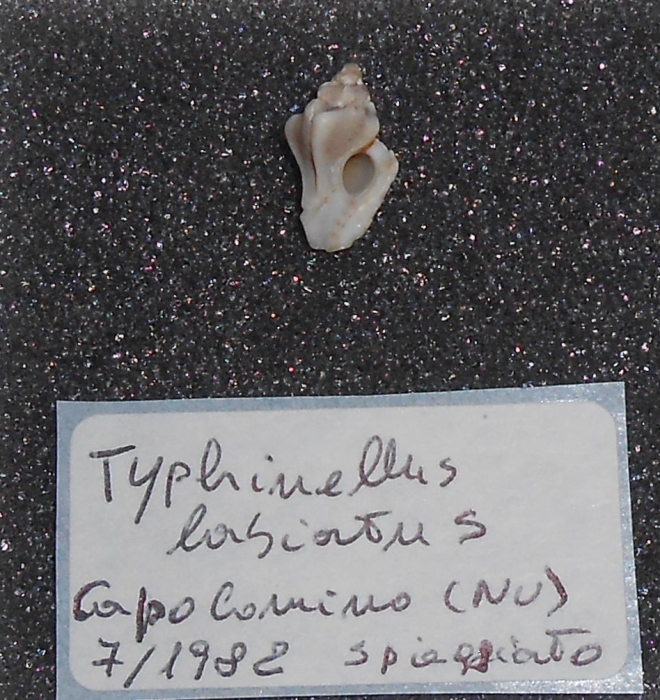 Typhinellus
labiatus
Capo Comino (NU)
7/1982 spiaggiato